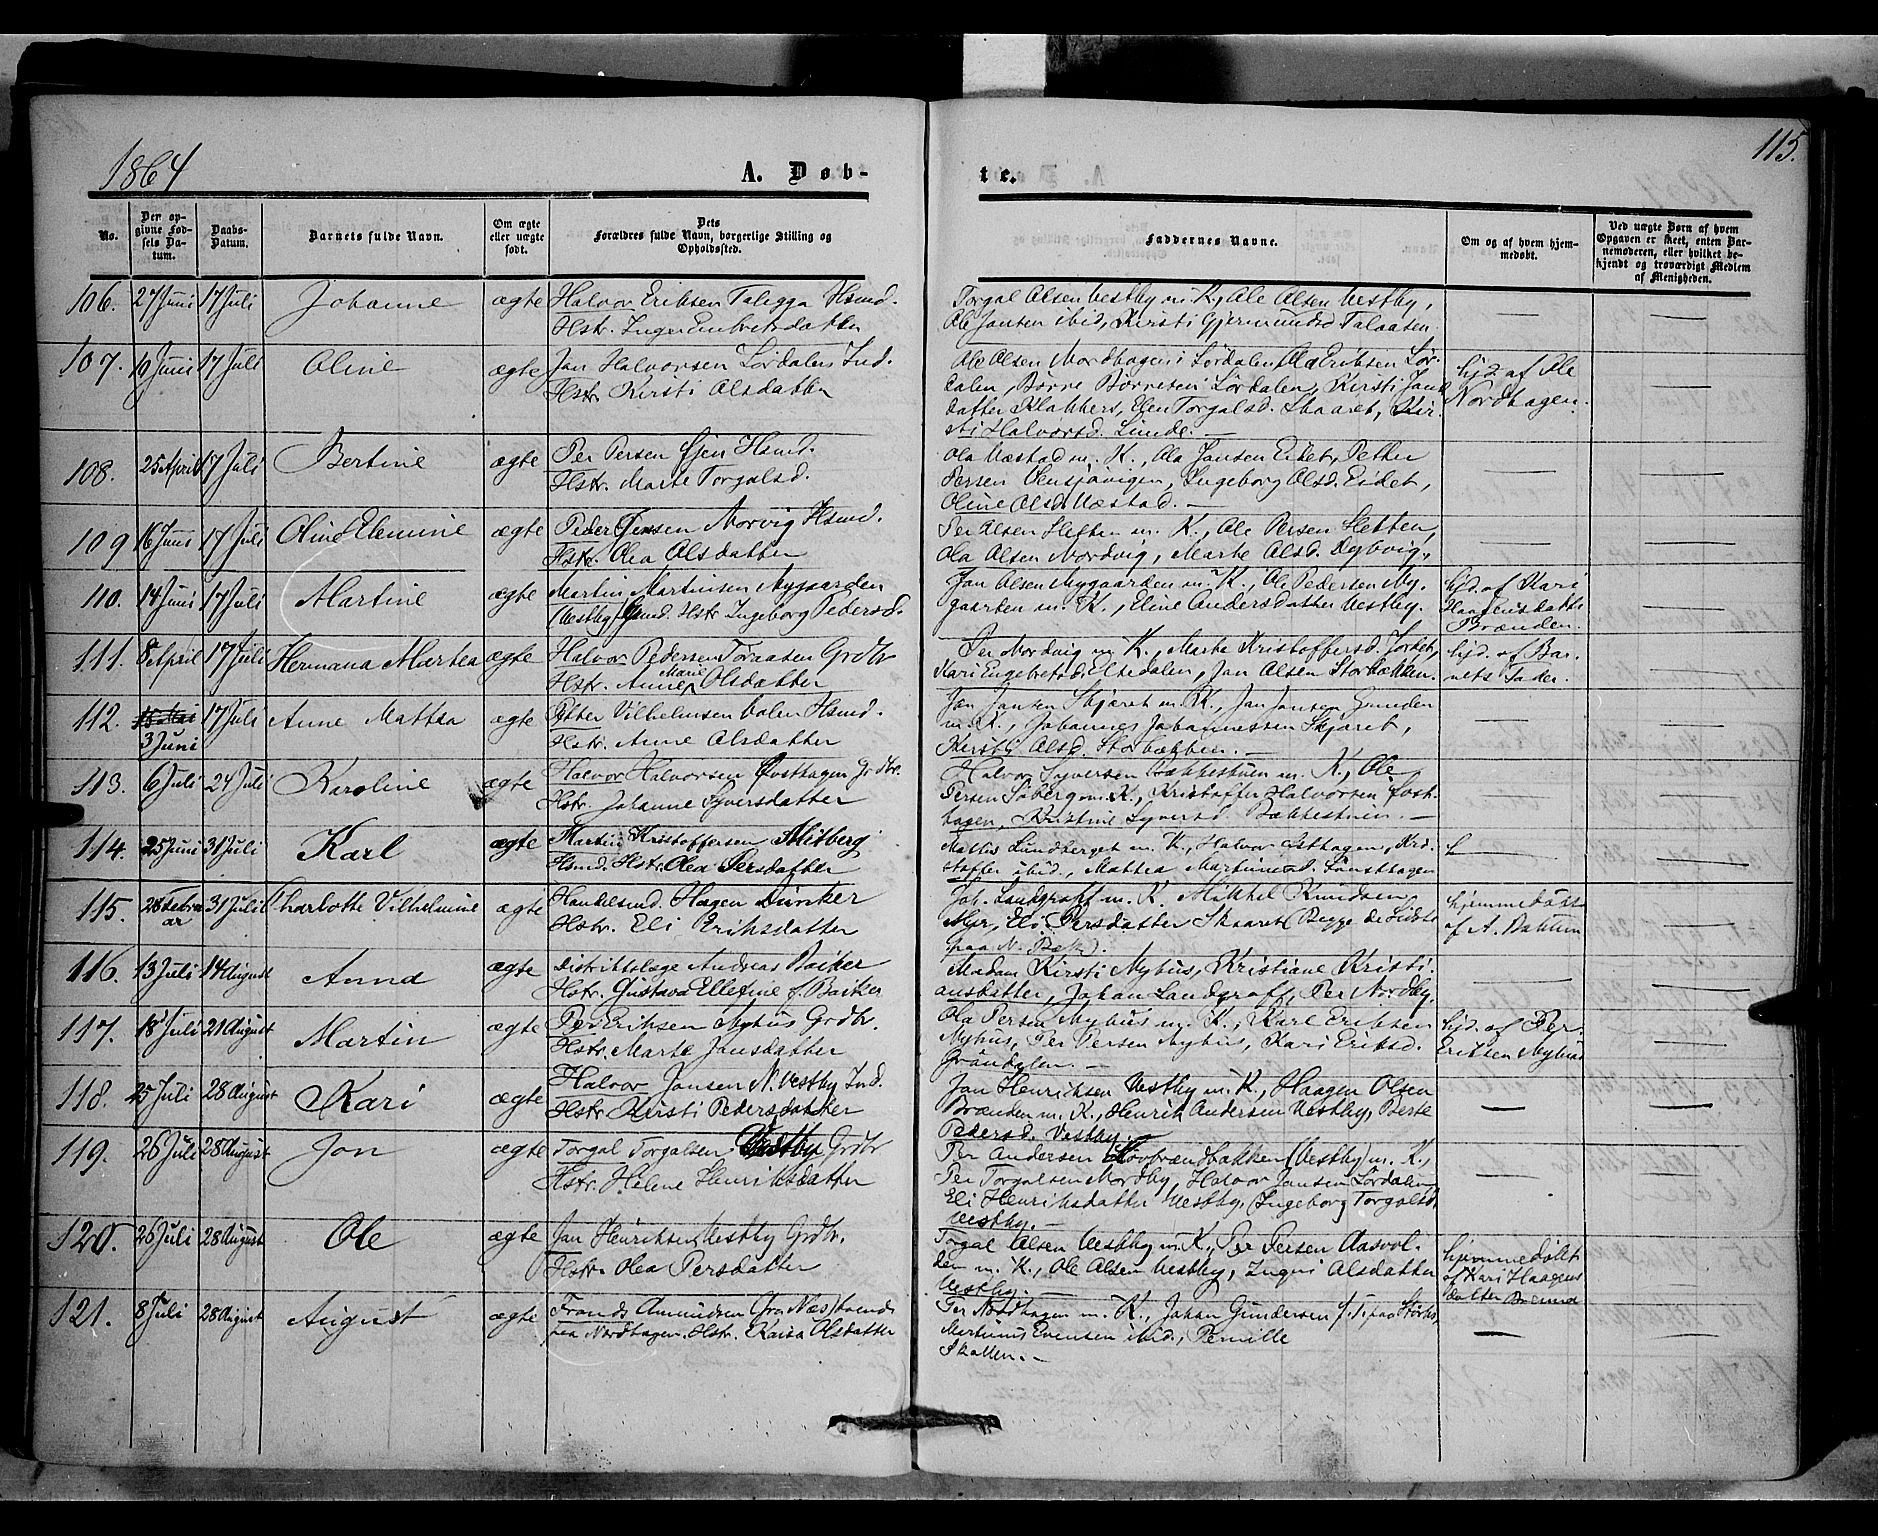 1864
A. Døb-
te.
115.
No.
Den op-
givne Fød-
sels Da-
tum.
Daabs-
Datum.
Barnets fulde Navn.
Om ægte
eller uægte
født.
Dets
Forældres fulde Navn, borgerlige Stilling og
Opholdssted.
Faddernes Navne.
Om og af hvem hjem-
medøbt.
Ved uægte Børn af hvem
Opgaven er skeet, enten Bar-
nemoderen, eller hvilket be-
kjendt og troværdigt Medlem
af Menigheden.
106. 27 Juni 17 Juli Johanne ægte Halvor Eriksen Hsmd.
Hstr. Inger Embretsdatter
Torgal Olsen Vestby m. K., Ole Olsen Vestby,
Ole Jansen ibid, Kirsti Gjermundsd
107. 10 Juni 17 Juli Oline ægte Jan Halvorsen Lørdalen Ind.
Hstr. Kirsti Olsdatter
Ole Olsen Nordhagen i Lørdalen Ola Eriksen Lør-
dalen, Børre Børresen Lørdalen, Kirsti Jans
datter, Elen Torgalsd. Skaaret, Kir-
sti Halvorsd. Linde. –
hjd. af Ole
Nordhagen.
108. 25 April 17 Juli Bertine ægte Per Persen Hsmd.
Hstr. Marte Torgalsd.
Ola Næstad m. K., Ola Jansen Eidet, Petter
Persen, Ingeborg Olsd. Eidet,
Oline Olsd Næstad. –
109 16 Juni 17 Juli Oline Elemine ægte Peder Jensen Norvig Hsmd.
Hstr. Olea Olsdatter
Per Olsen Sletten m. K., Ole Persen Sletten,
Ola Olsen Nordvig, Marte Olsd. Dybvig.
110. 14 Juni 17 Juli Martine ægte Martin Martinsen Nygaarden
(Vestby) Hsmd. Hstr Ingeborg Pedersd.
Jan Olsen Nygaarden m. K., Ole Pedersen Ny-
gaarden m. K., Eline Andersdatter Vestby.
hjd. af Kari
Haagensdatter
Brænden.
111. 8 April 17 Juli Hermana Martea ægte Halvor Pedersen Grdbr
Hstr. Anne Marie Olsdatter
Per Nordvig m. K., Marte Kristoffersd. Jordet,
Kari Engebretsd. Eltedalen, Jan Olsen Storbækken.
hjd. af Bar-
nets Fader.
112. 15 Mai
3 Juni 17 Juli Anne Mattea ægte Petter Vilhelmsen Hsmd.
Hstr. Anne Olsdatter
Jan Jansen Skjæret m. K., Jan Jansen Grunden
m. K., Johannes Johannessen Skjæret,
Kirsti Olsd. Storbækken. –
113. 6 Juli 24 Juli Karoline ægte Halvor Halvorsen Østhagen Grdbr.
Hstr. Johanne Syversdatter
Halvor Syversen Bækkestuen m. K., Ole
Persen Søberg m. K., Kristoffer Halvorsen Øst-
hagen, Kristine Syversd. Bækkestuen. –
114. 25 Juni 31 Juli Karl ægte Martin Kristoffersen
Hsmd. Hstr. Olea Persdatter
Mattis Lundberget m. K., Halvor Østhagen, Kri-
stoffer ibid., Mattea Martinsd.
h
115. 28 Februar 31 Juli Charlotte Vilhelmine ægte Handelsmd. Hagen Duncker
Hstr. Eli Eriksdatter
Joh. Landgraff m. K. Mikkel Knudsen
Myr, Eli Persdatter Skaaret (Begge de Sidste
paa N. Bæk).
hjemmedøbt
af A. Dahlum
116. 13 Juli 14 August Anna ægte Distriktslæge Andreas Barker
Hstr. Gustava Ellefine f. Barker
Madam Kirsti Myhus, Kristiane Kristi-
ansdatter, Johan Landgraff, Per Nordby.
117. 18 Juli 21 August Martin ægte Per Eriksen Myhus Grdbr.
Hstr. Marte Jansdatter
Ola Persen Myhus m. K., Karl Eriksen
Myhus, Per Persen Myhus, Kari Eriksd.
Grøndalen. –
hjd. af Per
Eriksen Myhus
118. 25 Juli 28 August Kari ægte Halvor Jansen N. Vestby Ind.
Hstr. Kirsti Pedersdatter
Jan Henriksen Vestby m. K., Haagen Olsen
Brænden m. K., Henrik Andersen Vestby, Berte
Pedersd. Vestby. –
119. 26 Juli 28 August Jon ægte Torgal Torgalsen Vestby Grdbr
Hstr. Helene Henriksdatter
Per Andersen (Vestby) m. K.,
Per Torgalsen Nordby, Halvor Jansen Lørdalen
Eli Henriksdatter Vestby, Ingeborg Torgalsd.
Vestby. –
120. 26 Juli 28 August Ole ægte Jan Henriksen Vestby Grdbr.
Hstr. Olea Persdatter
Torgal Olsen Vestby m. K., Per Persen Aasvol-
den m. K., Ole Olsen Vestby, Inger Olsdatter
Vestby. –
hjemmedøbt
af Kari Haagens
datter
121. 8 Juli 28 August August ægte Frands Amundsen
paa Nordhagen. Hstr. Kaisa Olsdatter
Per Nordhagen m. K., Johan Gundersen
Martinus Evensen ibid., Pernille
Skallen. –